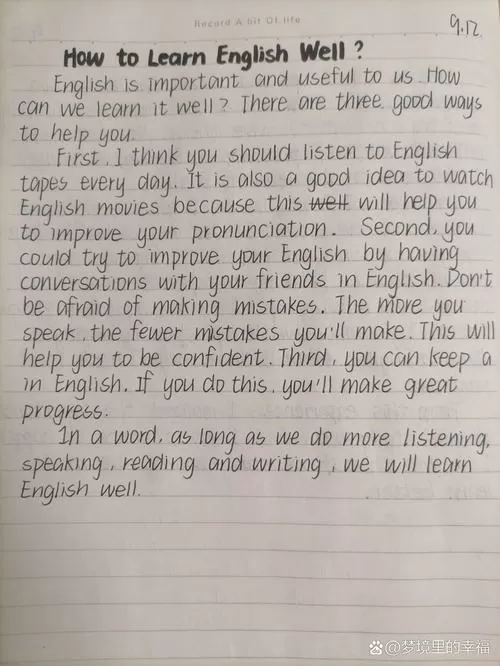 Record A bit Of life
9.12
How to Learn English Well?
English is important and useful to us. How
can we learn it well? There are three good ways
to help you.
First, I think you should listen to English
tapes every day. It is also a good idea to watch
English movies because this well will help you
to improve your pronunciation. Second, you
could try to improve your English by having
conversations with your friends in English. Don't
be afraid of making mistakes. The more you
speak, the fewer mistakes you'll make. This will
help you to be confident. Third, you can keep a
in English. If you do this, you'll make great
progress.
In a word, as long as we do more listening,
speaking, reading and writing, we will learn
English well.
百度 @梦境里的幸福